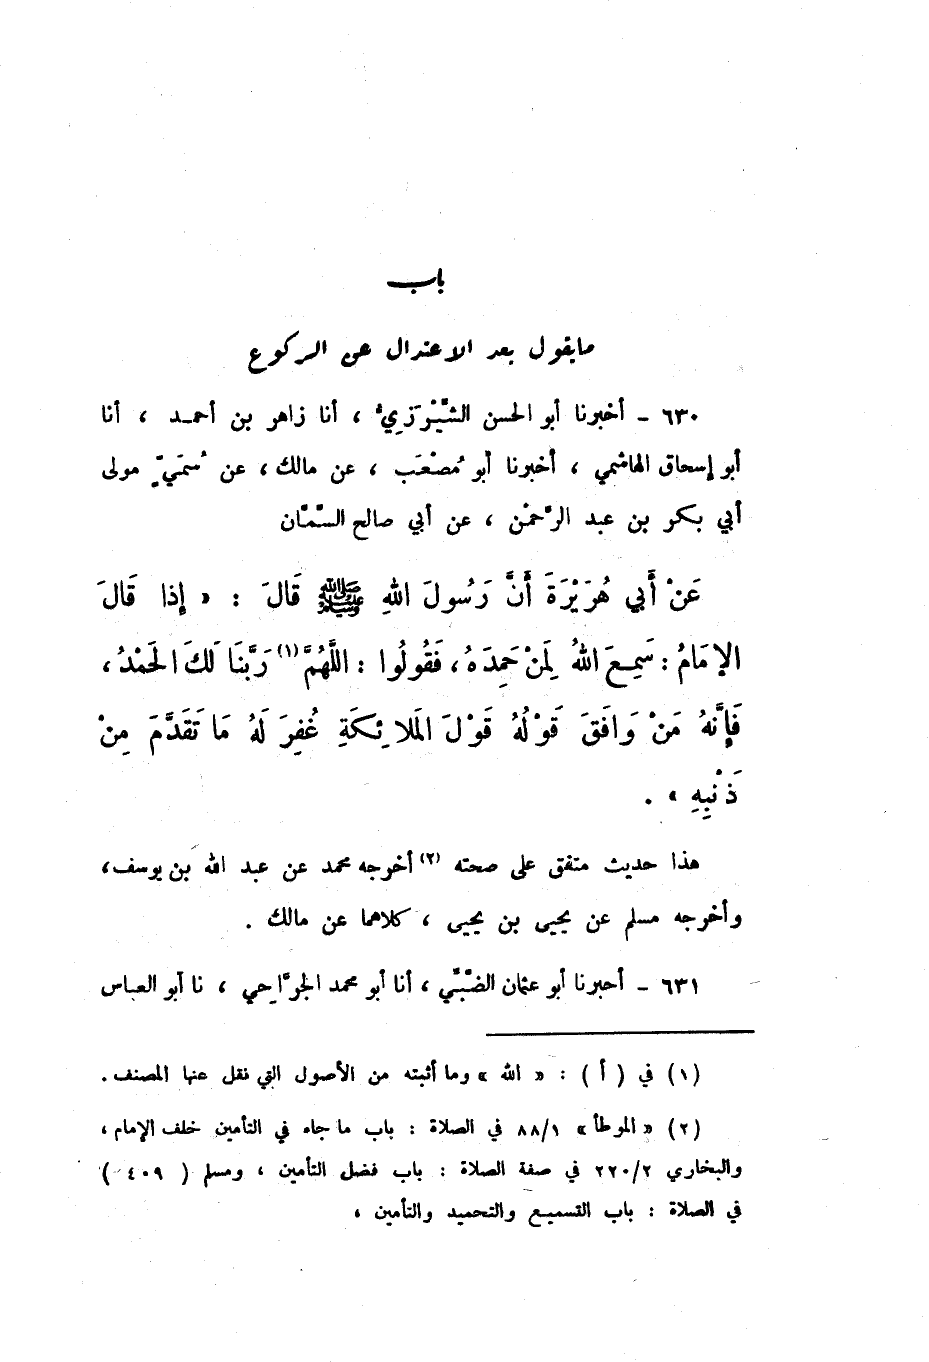 باب
مايقول بعد الاعتدال عن الركوع
٦٣٠ ـ أخبرنا أبو الحسن الشِّيْرَزيُّ ، أنا زاهر بن أحمد ، أنا
أبو إسحاق الهاشمي ، أخبرنا أبو مُصْعَب ، عن مالك ، عن سُمَيّ مولى
أبي بكر بن عبد الرَّحمٰن ، عن أبي صالح السَّمَّان
عَنْ أَبي هُرَيْرَةَ أَنَّ رَسُولَ اللهِ ﷺ قَالَ : « إِذا قَالَ
الإِمَامُ : سَمِعَ اللهُ لِمَنْ حَمِدَهُ ، فَقُولُوا : اللَّهُمَّ (١) رَبَّنَا لَكَ الحَمْدُ ،
فَإِنَّهُ مَنْ وَافَقَ قَوْلُهُ قَوْلَ المَلائِكَةِ غُفِرَ لَهُ مَا تَقَدَّمَ مِنْ
ذَنْبِهِ » .
هذا حديث متفق على صحته (٢) أخرجه محمد عن عبد الله بن يوسف ،
وأخرجه مسلم عن يحيى بن يحيى ، كلاهما عن مالك .
٦٣١ ـ أخبرنا أبو عثمان الضَّبِّي ، أنا أبو محمد الجرَّاحِي ، نا أبو العباس
(١) في ( أ ) : « الله » وما أثبته من الأصول التي نقل عنها المصنف .
(٢) « الموطأ » ٨٨/١ في الصلاة : باب ما جاء في التأمين خلف الإمام ،
والبخاري ٢٢٠/٢ في صفة الصلاة : باب فضل التأمين ، ومسلم ( ٤٠٩ )
في الصلاة : باب التسميع والتحميد والتأمين ،